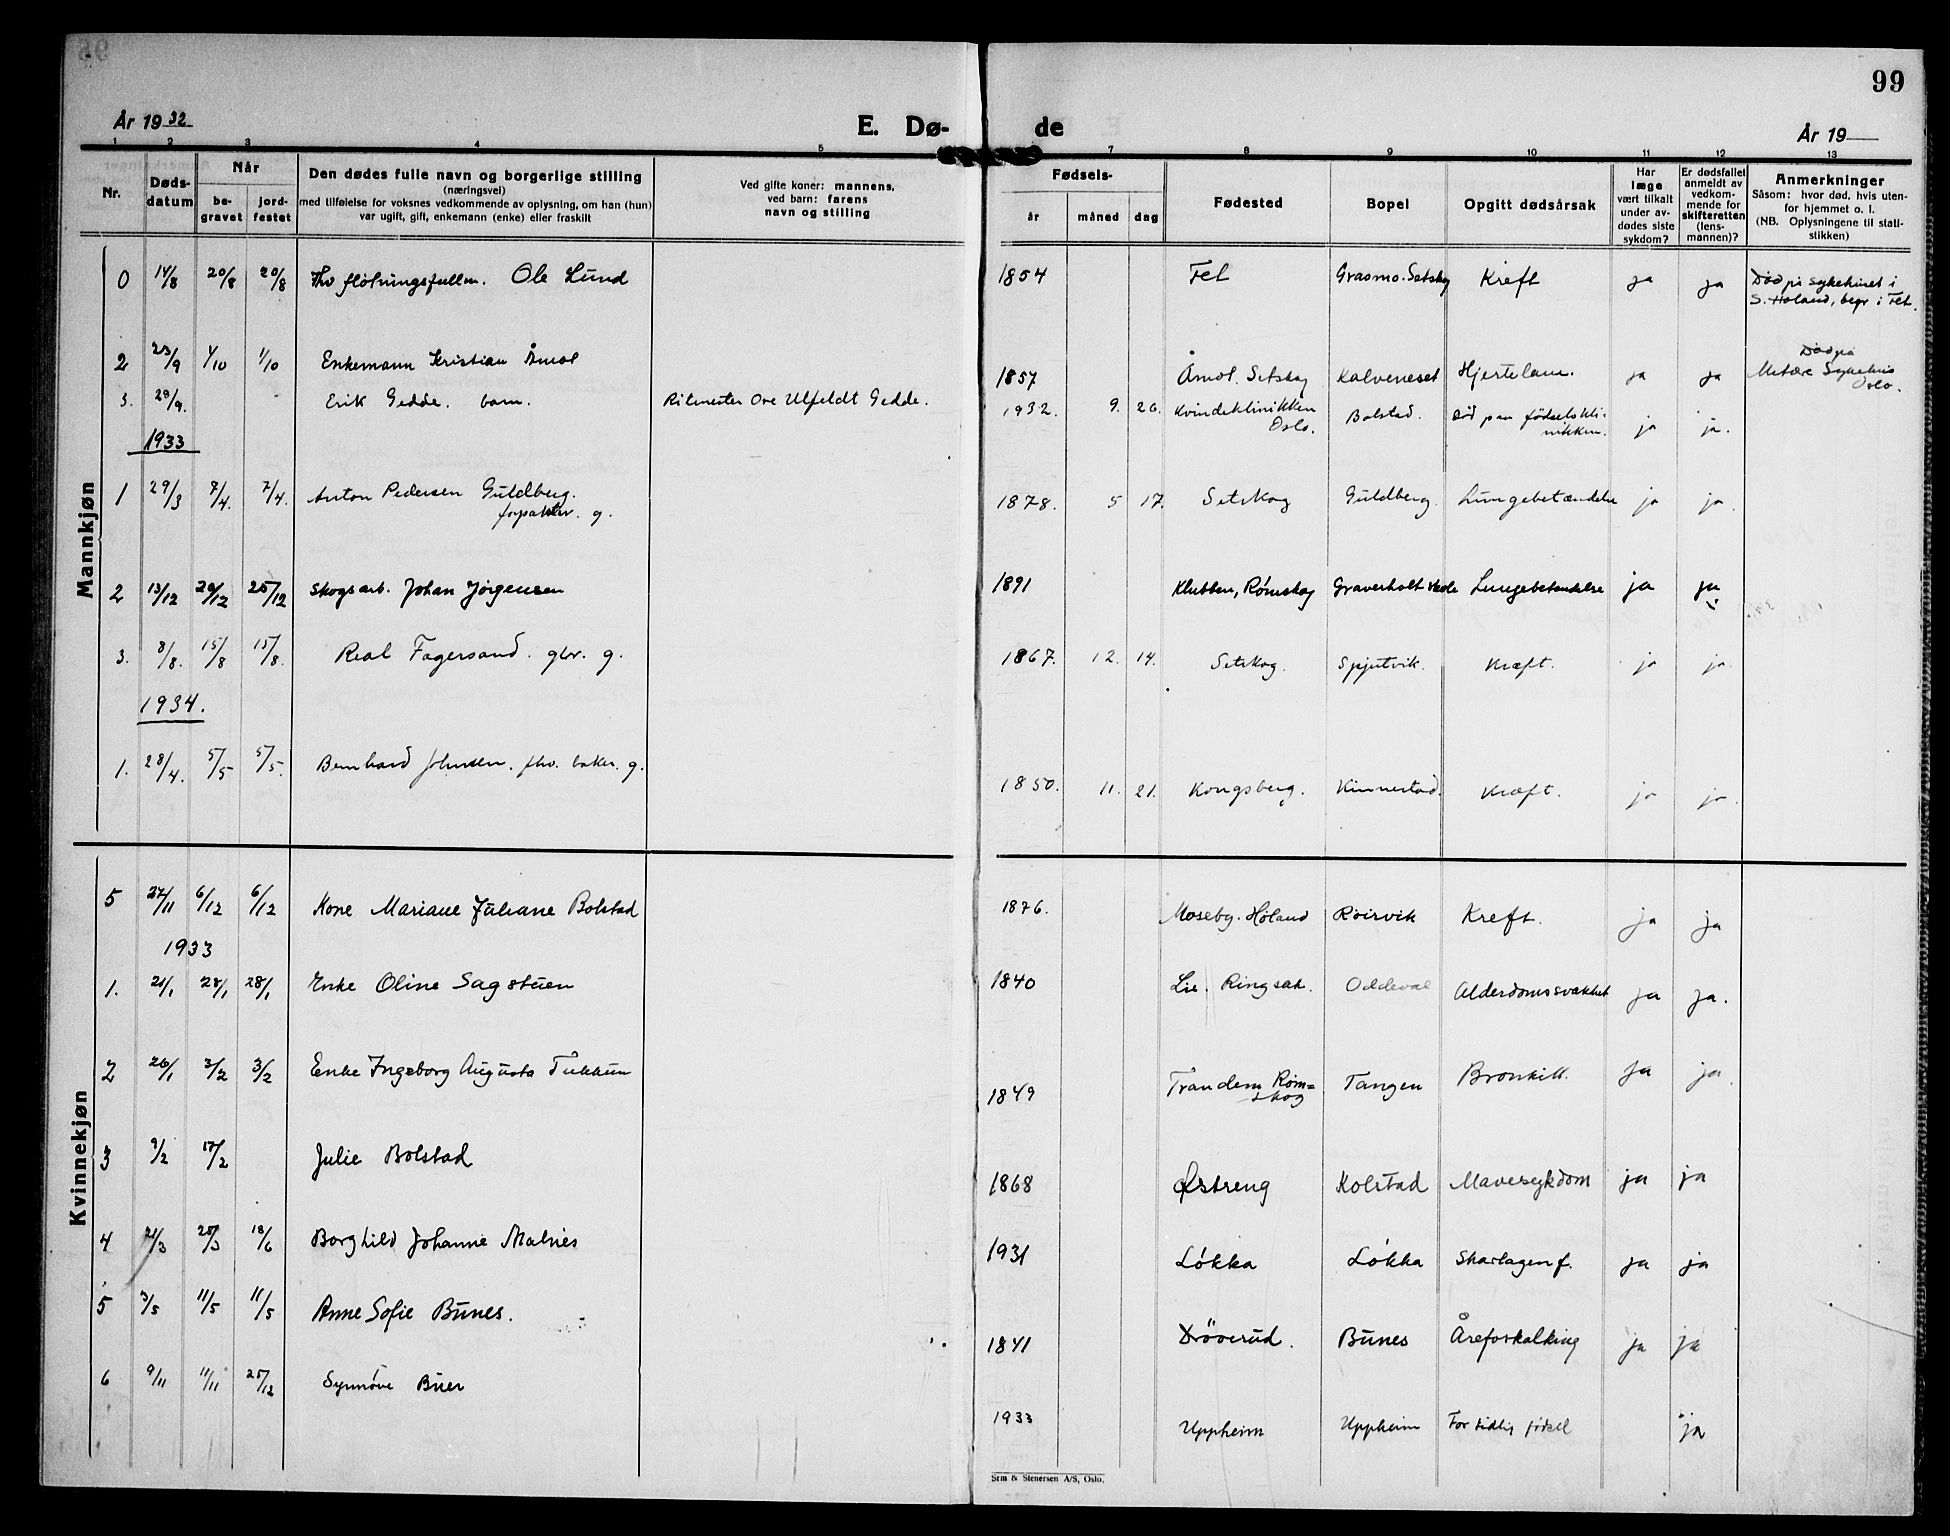 99
År 1932
E. Dø-
de
År 19
1 2 3 4 5 7 8 9 10 11 12 13
Nr.
Døds-
datum
Når
be-
gravet
jord-
festet
Den dødes fulle navn og borgerlige stilling
(næringsvei)
med tilføielse for voksnes vedkommende av oplysning, om han (hun)
var ugift, gift, enkemann (enke) eller fraskilt
Ved gifte koner: mannens,
ved barn: farens
navn og stilling
Fødsels-
år måned dag
Fødested
Bopel
Opgitt dødsårsak
Har
læge
vært tilkalt
under av-
dødes siste
sykdom?
Er dødsfallet
anmeldt av
vedkom-
mende for
skifteretten
(lens-
mannen)?
Anmerkninger
Såsom: hvor død, hvis uten-
for hjemmet o. l.
(NB. Oplysningene til stati-
stikken)
Mannkjøn
0 14/8 20/8 20/8 Fhv fløtningsfullm. Ole Lund 1854 Fet Grasmo. Setskog Kreft ja ja Død på sykehuset i
S. Høland, begr i Fet.
2 23/9 1/10 1/10 Enkemann Kristian Åmol 1857 Åmol. Setskog Kalveneset Hjertelam. ja ja Død på
Sykehus
Oslo.
3. 29/9. Erik Gedde. barn. Ritmester Ove Ulfeldt Gedde. 1932. 9. 26. Kvindeklinikken
Oslo. Bolstad. død paa fødselskli-
nikken. ja ja.
1933
1 29/3 7/4. 7/4. Anton Pedersen Guldberg.
forpakter. g. 1878. 5 17. Setskog Guldberg. Lungebetændelse ja ja.
2 13/12 20/12 25/12 Skogsarb. Johan Jørgensen 1891 Klubben, Rømskog Graverholt Lungebetendelse ja ja
3. 8/8. 15/8 15/8. Real Fagersand. gbr. g. 1867. 12. 14. Setskog. Spjutvik. Kræft. ja ja.
1934.
1. 28/4. 5/5 5/5. Bernhard Johnsen. fhv. baker. g. 1850. 11. 21. Kongsberg. Kinnestad. Kræft. ja ja.
Kvinnekjøn
5 27/11 6/12 6/12 Kone Mariane Juliane Bolstad 1876. Moseby. Høland Røirvik Kreft. ja ja
1933
1. 21/1 28/1 28/1 Enke Oline Sagstuen 1840 Lie. Ringsak. Oddeval Alderdomssvakhet ja ja.
2 26/1 3/2 3/2 Enke Ingeborg Augusta Tukkun 1849 Trandem Røm=
skog Tangen Bronkitt. ja ja.
3 9/2 17/2 Julie Bolstad 1868 Østreng Kolstad Mavesykdom ja ja
4 21/3 28/3 18/6 Borghild Johanne Malnes 1931 Løkka Løkka Skarlagenf. ja ja
5 3/5 11/5 11/5 Anne Sofie Bunes. 1841 Drøverud. Bunes Åreforkalking ja ja
6 9/11 11/11 25/12 Synnøve Buer 1933 Uppheim Uppheim For tidlig fødsel ja
Sem & Stenersen A/S, Oslo.